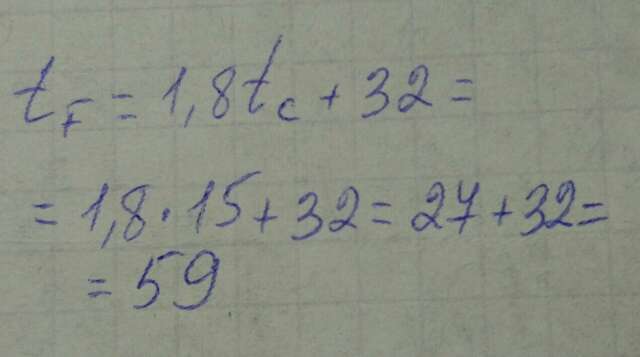 t_F = 1,8t_c + 32 =
= 1,8 · 15 + 32 = 27 + 32 =
= 59